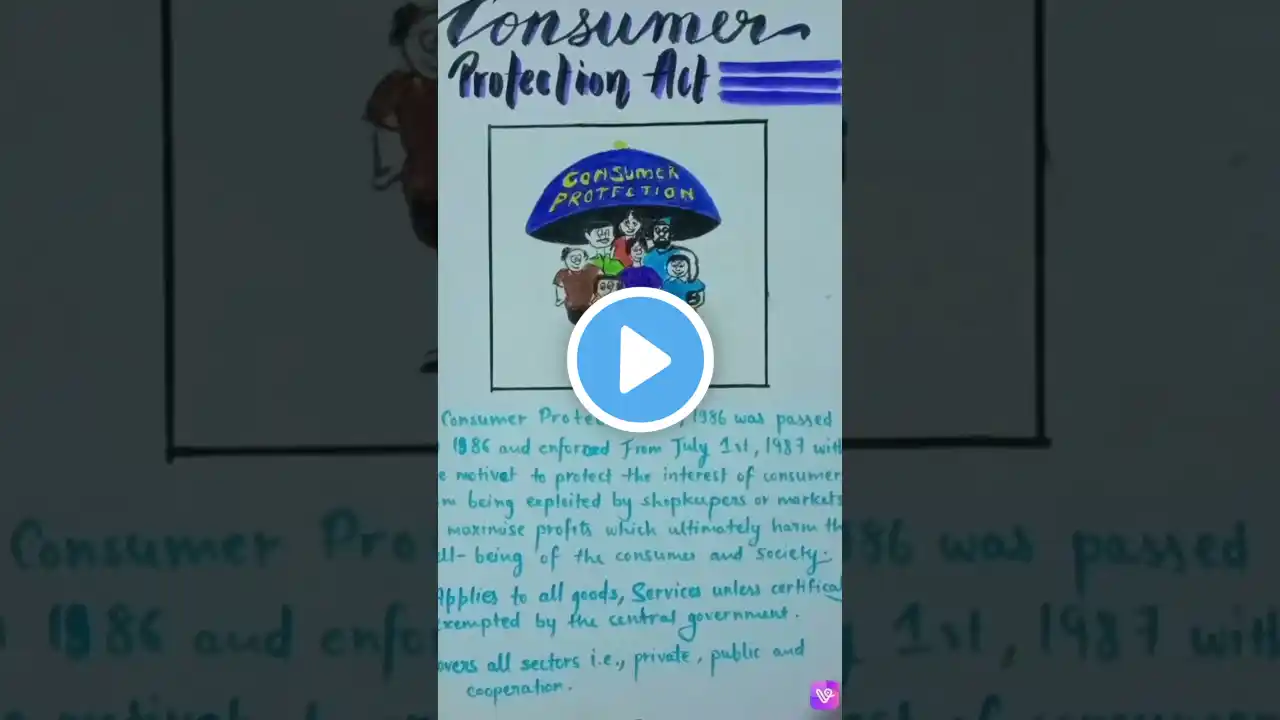 Consumer
Protection Act
CONSUMER
PROTECTION
Consumer Prote , 1986 was passed
1986 and enforced From July 1st, 1987 with
e motivet to protect the interest of consumer
m being exploited by shopkeepers or markets
maximise profits which ultimately harm th
ll-being of the consumer and society.
Applies to all goods, Services unless certifical
exempted by the central government.
overs all sectors i.e., private, public and
cooperation.